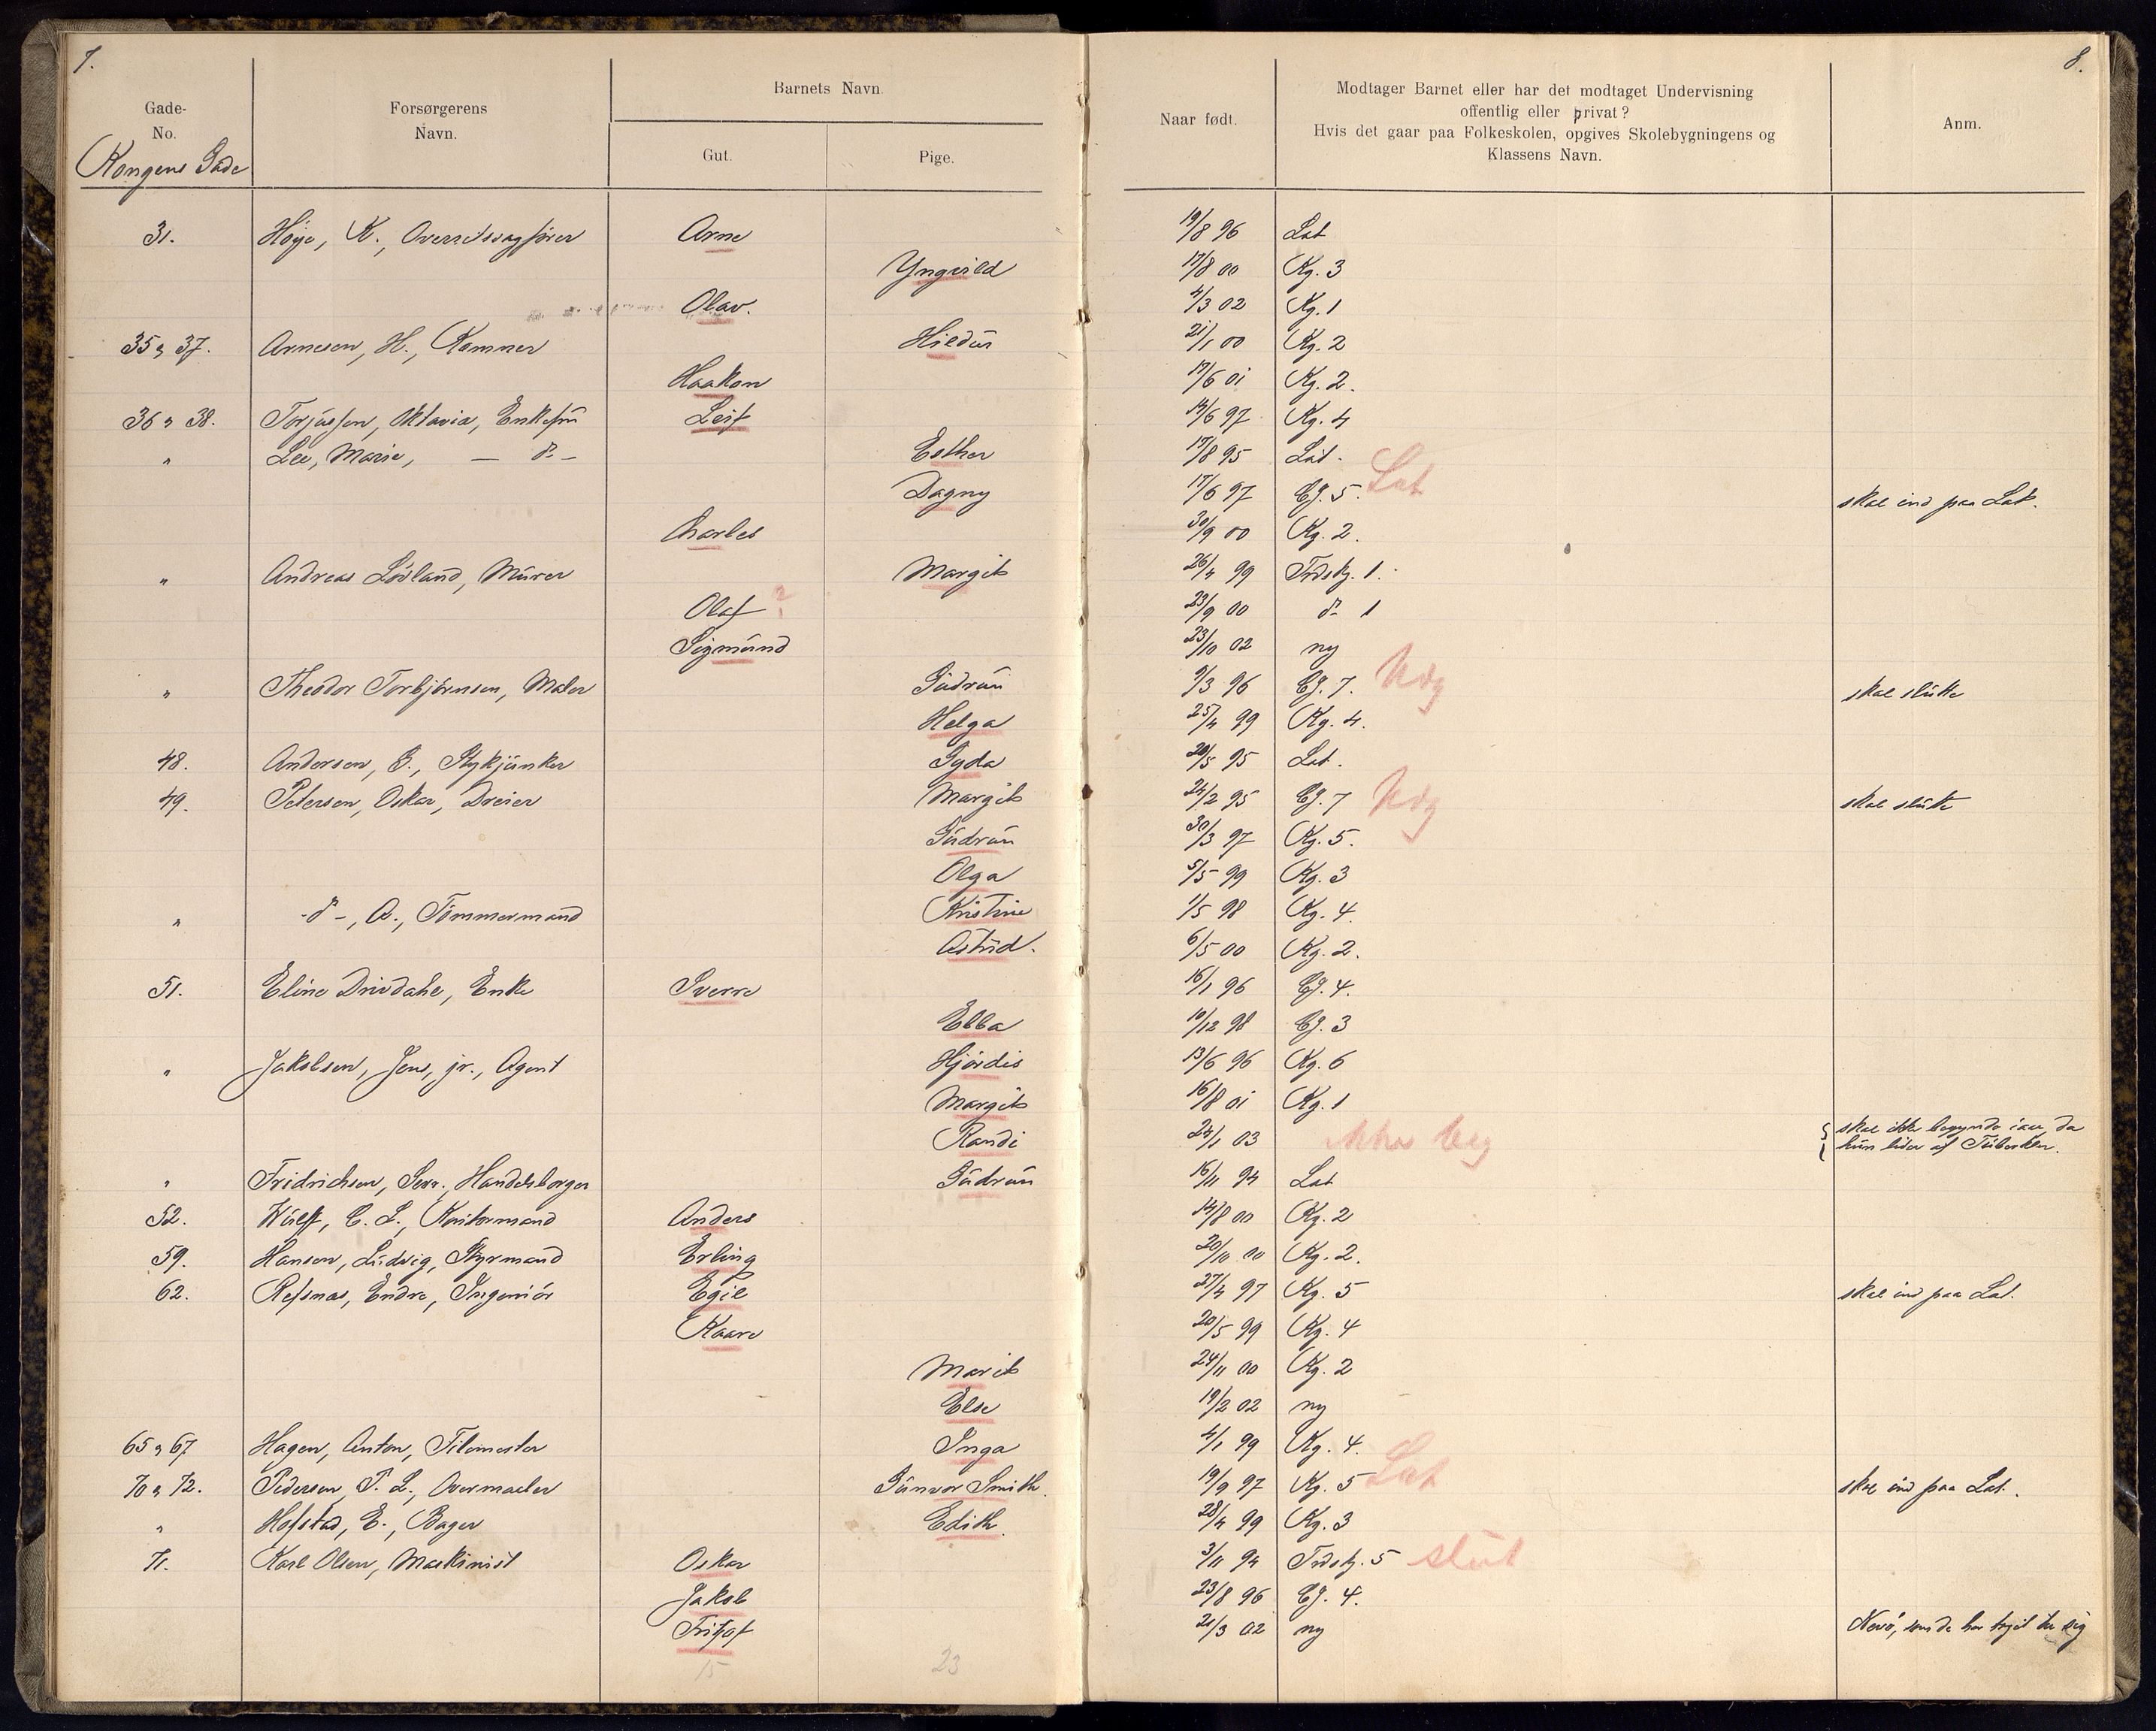 7.
8.
Gade-
No.
Forsørgerens
Navn.
Barnets Navn.
Gut.
Pige.
Naar født.
Modtager Barnet eller har det modtaget Undervisning
offentlig eller privat?
Hvis det gaar paa Folkeskolen, opgives Skolebygningens og
Klassens Navn.
Anm.
Kongens Gade
31. Høye, K., Overretssagfører Arne 19/8 96 Lat
Yngvild 17/8 00 Kg. 3
Olav. 4/3 02 Kg. 1
35 & 37. Arnesen, H., Kømner Hildur 21/1 00 Kg. 2
Haakon 17/6 01 Kg. 2.
36 & 38. Torjussen, Oktavia, Enkefru Leif 14/6 97 Kg. 4
" Lee, Marie, — do — Esther 17/8 95 Lat.
Dagny 17/6 97 Cg. 5. Lat skal ind paa Lat.
Charles 30/9 00 Kg. 2.
" Andreas Løvland, Murer Margit 26/4 99 Trdskg. 1.
Olaf ? 23/9 00 do 1
Sigmund 23/10 02 ny
" Theodor Torbjørnsen, Maler Gudrun 9/3 96 Cg. 7. Udg skal slutte
Helga 25/4 99 Kg. 4.
48. Andersen, G., Stykjunker Gyda 20/5 95 Lat.
49. Petersen, Oskar, Dreier Margit 24/2 95 Cg. 7 Udg skal slutte
Gudrun 30/3 97 Kg. 5.
Olga 5/5 99 Kg. 3
" - do -, A., Tømmermand Kristine 1/5 98 Kg. 4.
Astrid. 6/5 00 Kg. 2.
51. Eline Drivdahl, Enke Sverre 16/1 96 Cg. 4.
Ebba 10/12 98 Cg. 3
" Jakobsen, Jens, jr., Agent Hjørdis 13/6 96 Kg. 6
Margit 16/8 01 Kg. 1
Randi 24/1 03 ikke beg skal ikke begynde iaar, da
hun lider af Tuberkler.
" Fridrichsen, Sev., Handelsborger Gudrun 16/11 94 Lat
52. Wulff, C. L., Kontormand Anders 14/8 00 Kg. 2
59. Hansen, Ludvig, Styrmand Erling 20/10 00 Kg. 2.
62. Refsnæs, Endre, Ingeniør Egil 27/4 97 Kg. 5 skal ind paa Lat.
Kaare 20/5 99 Kg. 4
Marit 24/11 00 Kg. 2
Else 19/2 02 ny
65 & 67 Hagen, Anton, Filemester Inga 4/1 99 Kg. 4.
70 & 72. Pedersen, P. L., Overmaaler Gunvor Smith. 19/9 97 Kg. 5 Lat skal ind paa Lat.
" Hofstad, E., Bager Edith. 28/4 99 Kg. 3
71. Karl Olsen, Maskinist Oskar 3/11 94 Trdskg. 5 slut
Jakob 23/8 96 Cg. 4.
Fritjof 21/3 02 ny Nevø, som de har taget til sig
15
23